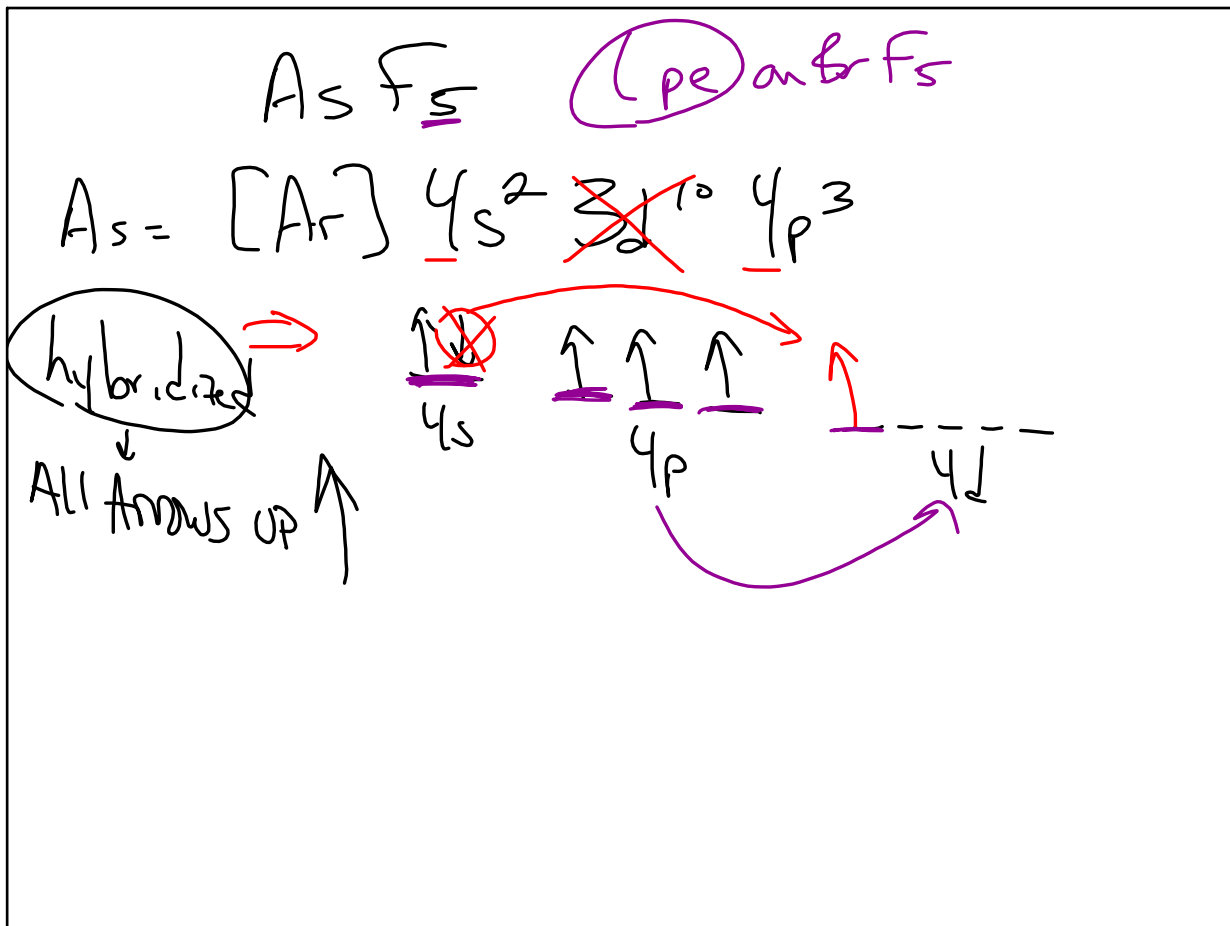 AsF5 lpe on BrF5
As = [Ar] 4s² 3d¹⁰ 4p³
hybridized
4s 4p 4d
All Arrows up